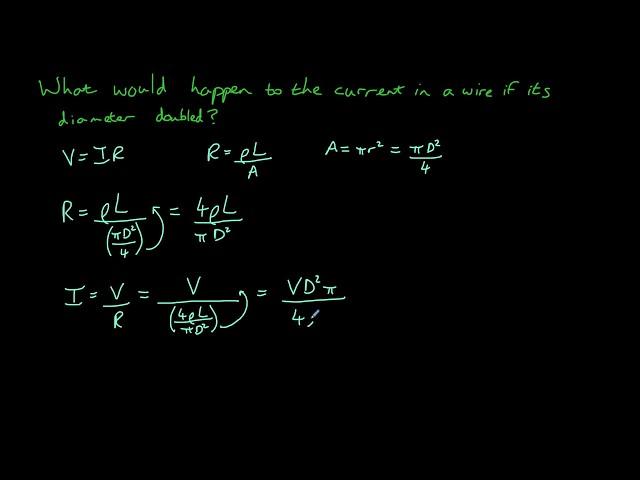 What would happen to the current in a wire if its
diameter doubled?
V = IR R = ρL/A A = πr² = πD²/4
R = ρL/(πD²/4) = 4ρL/πD²
I = V/R = V/(4ρL/πD²) = VD²π/4